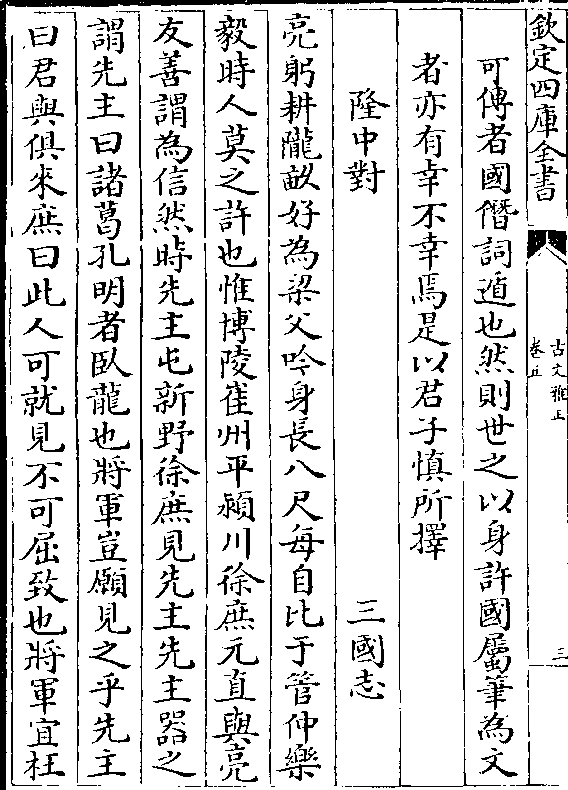 欽定四庫全書
古文雅正
卷五
三
可傳者國僭詞遁也然則世之以身許國屬筆為文
者亦有幸不幸焉是以君子慎所擇
隆中對 三國志
亮躬耕隴畝好為梁父吟身長八尺每自比于管仲樂
毅時人莫之許也惟博陵崔州平潁川徐庶元直與亮
友善謂為信然時先主屯新野徐庶見先主先主器之
謂先主曰諸葛孔明者臥龍也將軍豈願見之乎先主
曰君與俱來庶曰此人可就見不可屈致也將軍宜枉